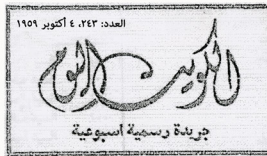 العدد: ٢٤٣، ٤ أكتوبر ١٩٥٩
الكويت اليوم
جريدة رسمية اسبوعية